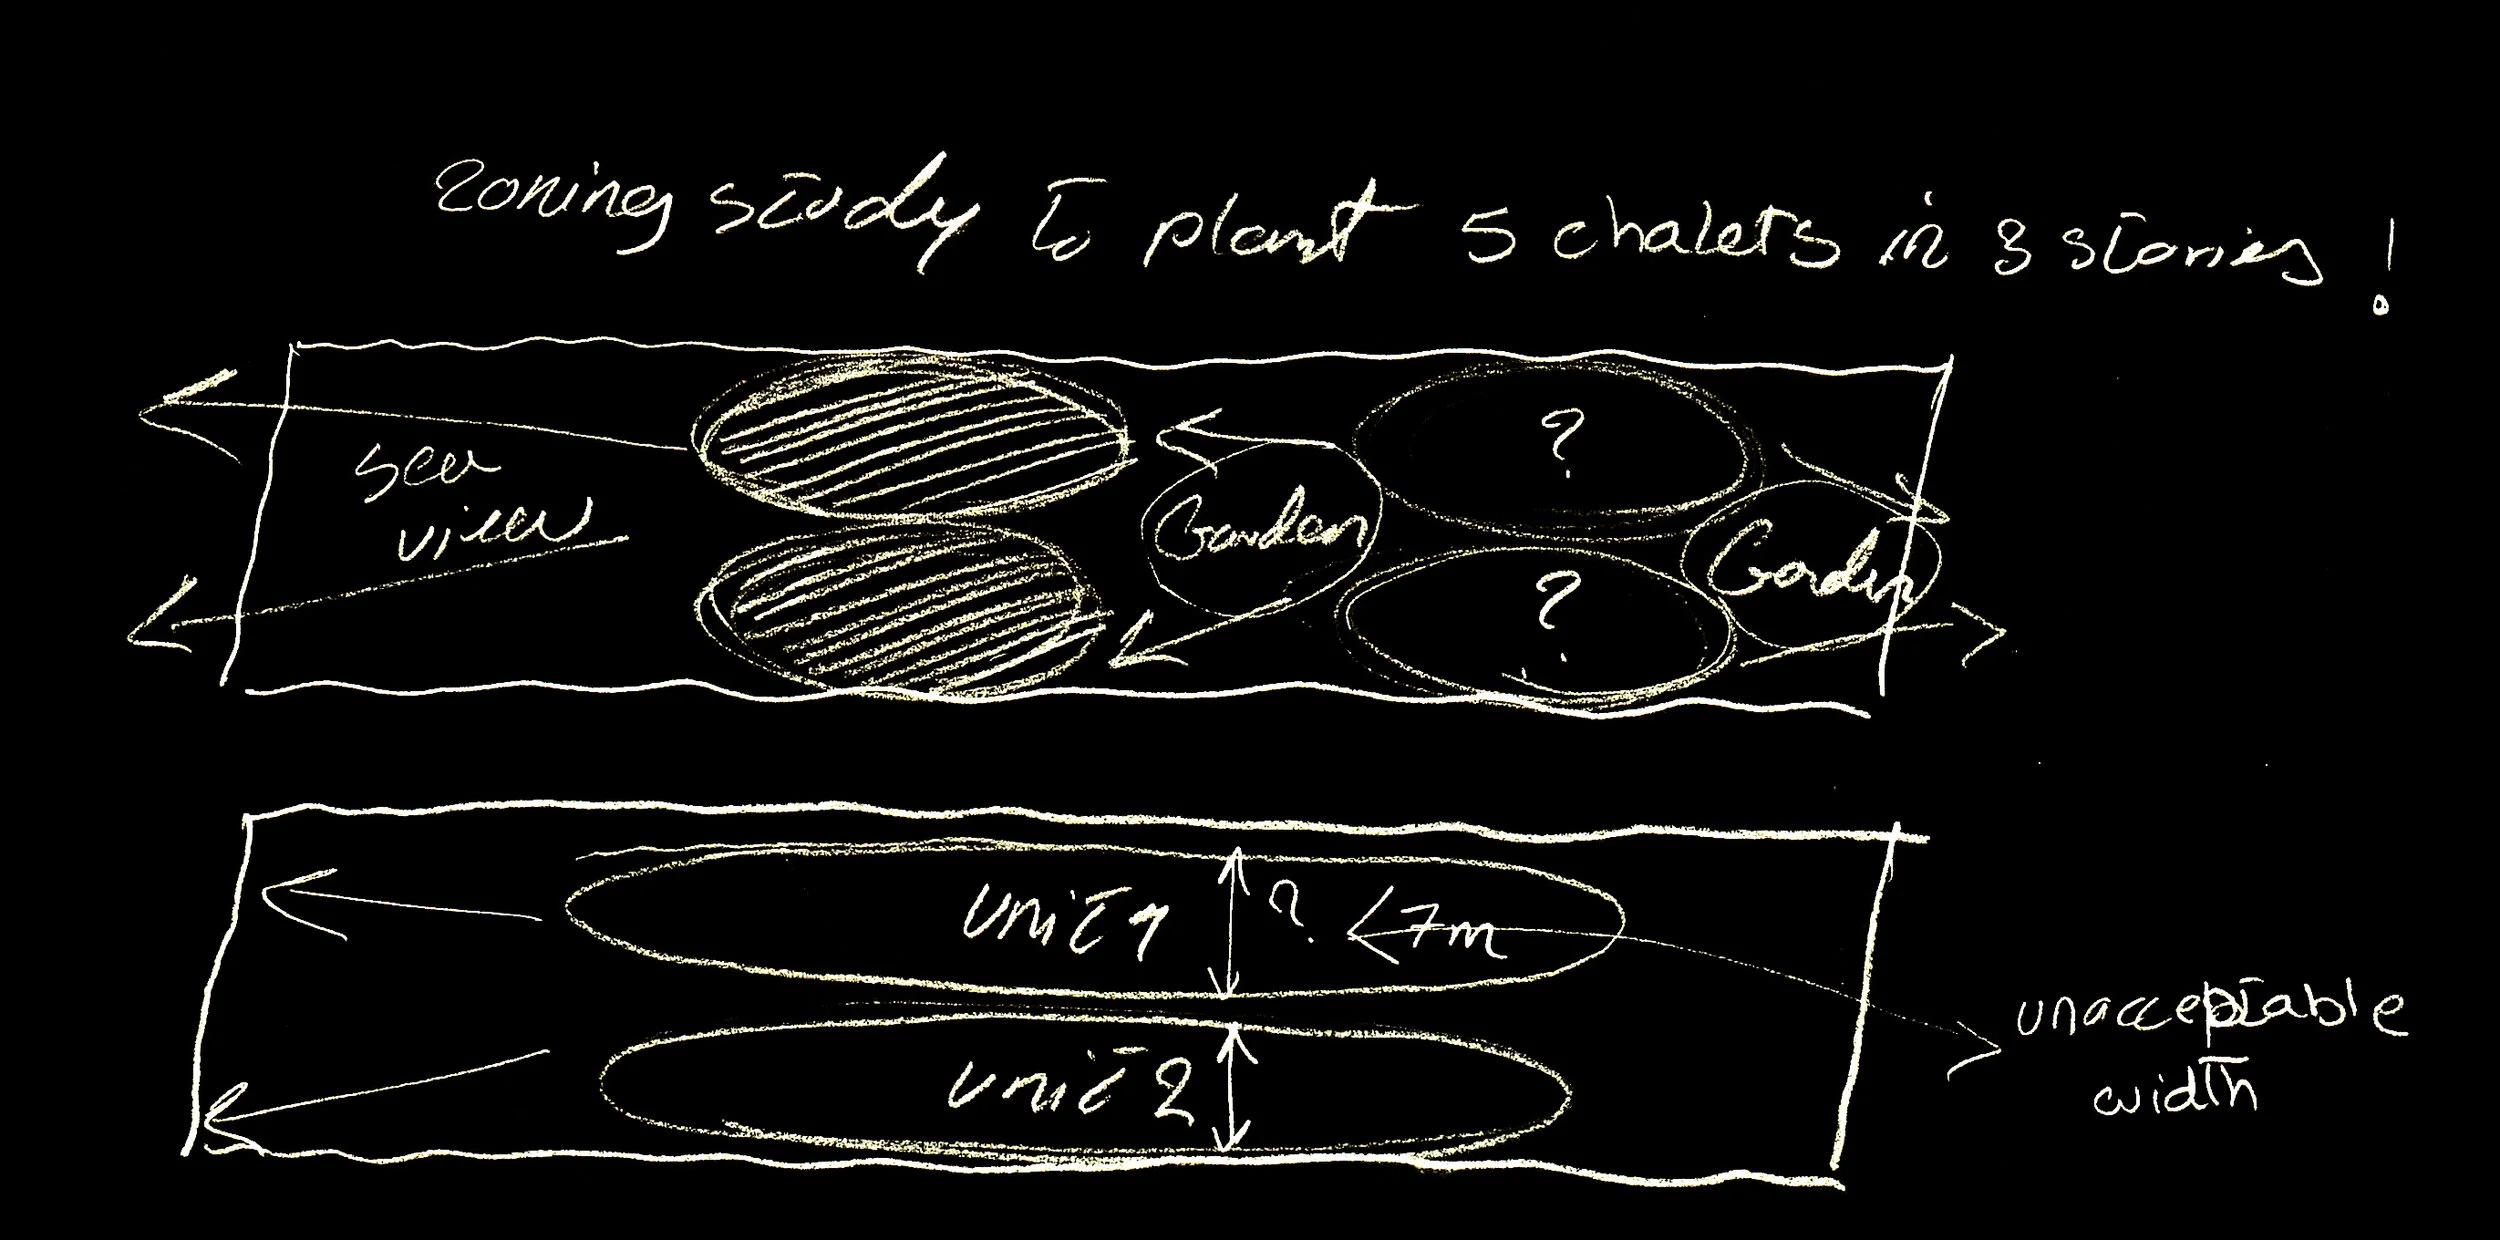 zoning study to plant 5 chalets in 3 stories !
sea
view
Garden
?
?
Garden
unit 1 ? <7m
unit 2
unacceptable
width